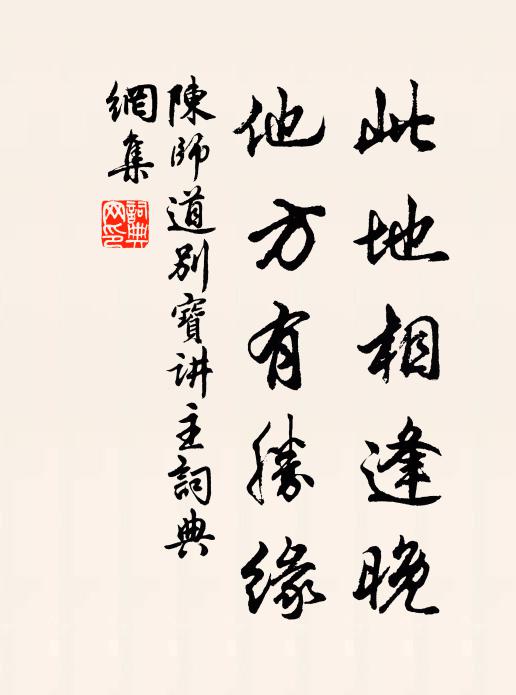 此地相逢晚
他方有勝緣
陳師道別寶讲主詞典
網集
詞典網印